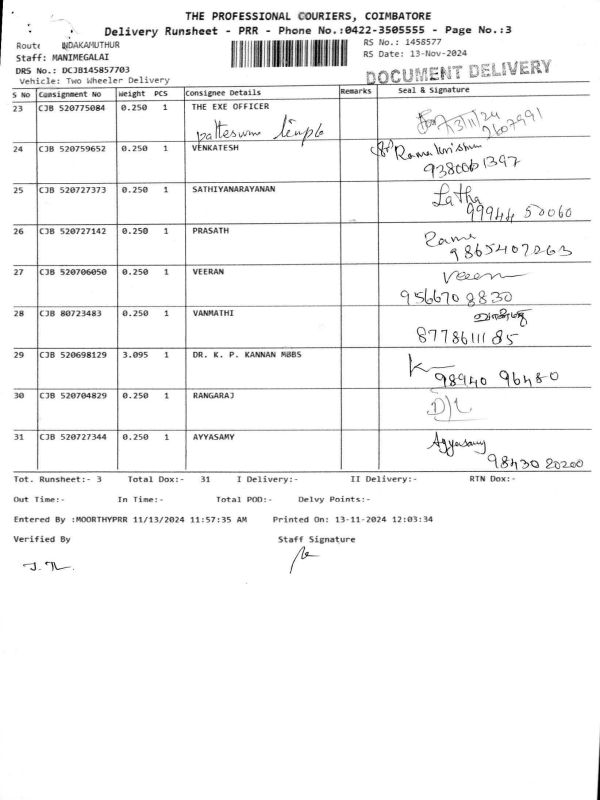 THE PROFESSIONAL COURIERS, COIMBATORE
Delivery Runsheet - PRR - Phone No.:0422-3505555 - Page No.:3
Route INDAKAMUTHUR
RS No.: 1458577
Staff: MANIMEGALAI
RS Date: 13-Nov-2024
DRS No.: DCJB145857703
DOCUMENT DELIVERY
Vehicle: Two Wheeler Delivery
S No Consignment No Weight PCS Consignee Details Remarks Seal & Signature
23 CJB 520775084 0.250 1 THE EXE OFFICER
13/11/24
2607991
24 CJB 520759652 0.250 1 VENKATESH
9380061397
25 CJB 520727373 0.250 1 SATHIYANARAYANAN Latha
99944 50060
26 CJB 520727142 0.250 1 PRASATH Rama
9865407263
27 CJB 520706050 0.250 1 VEERAN Veeran
956670 8830
28 CJB 80723483 0.250 1 VANMATHI வான்மதி
8778611185
29 CJB 520698129 3.095 1 DR. K. P. KANNAN MBBS
98940 96480
30 CJB 520704829 0.250 1 RANGARAJ
31 CJB 520727344 0.250 1 AYYASAMY Ayyasamy
98430 20200
Tot. Runsheet:- 3 Total Dox:- 31 I Delivery:- II Delivery:- RTN Dox:-
Out Time:- In Time:- Total POD:- Delvy Points:-
Entered By :MOORTHYPRR 11/13/2024 11:57:35 AM Printed On: 13-11-2024 12:03:34
Verified By Staff Signature